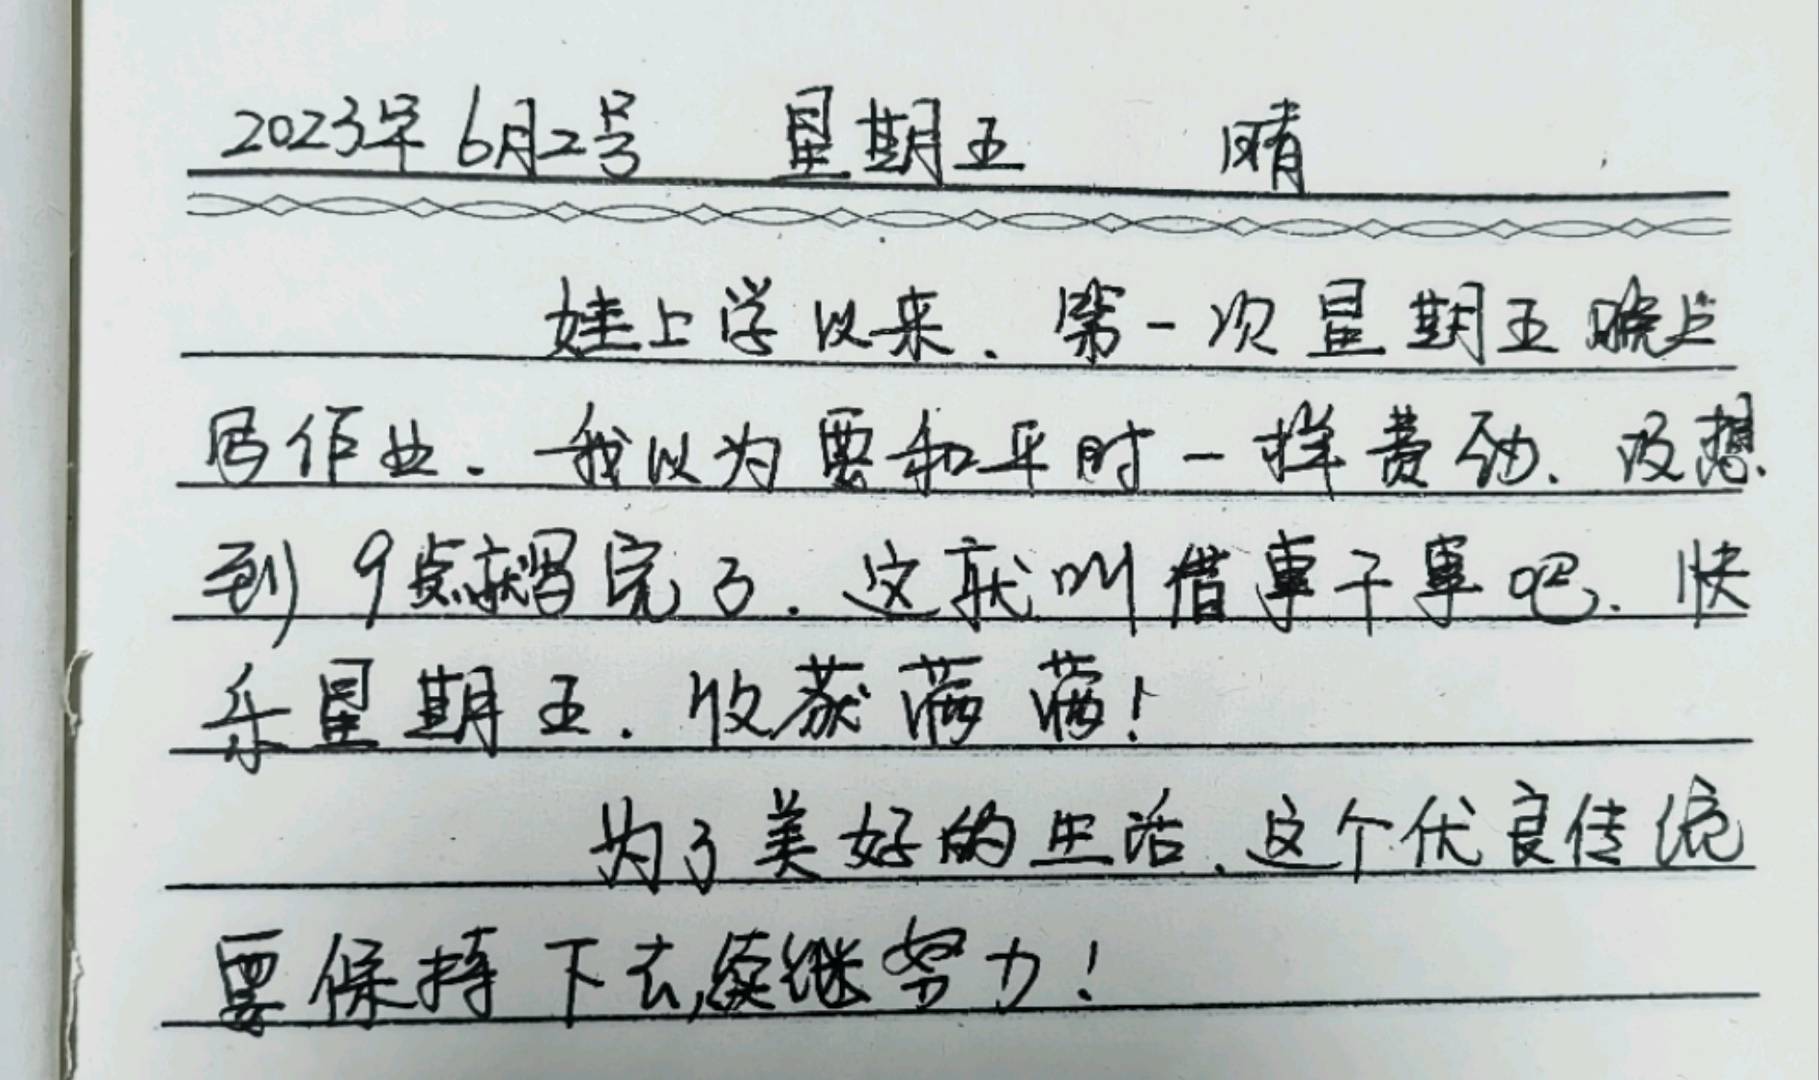 2023年6月2号 星期五 晴
娃上学以来、第一次星期五晚上
写作业.我以为要和平时一样费劲.没想
到9点就写完了.这就叫借事干事吧.快
乐星期五.收获满满!
为了美好的生活、这个优良传统
要保持下去,续继努力!